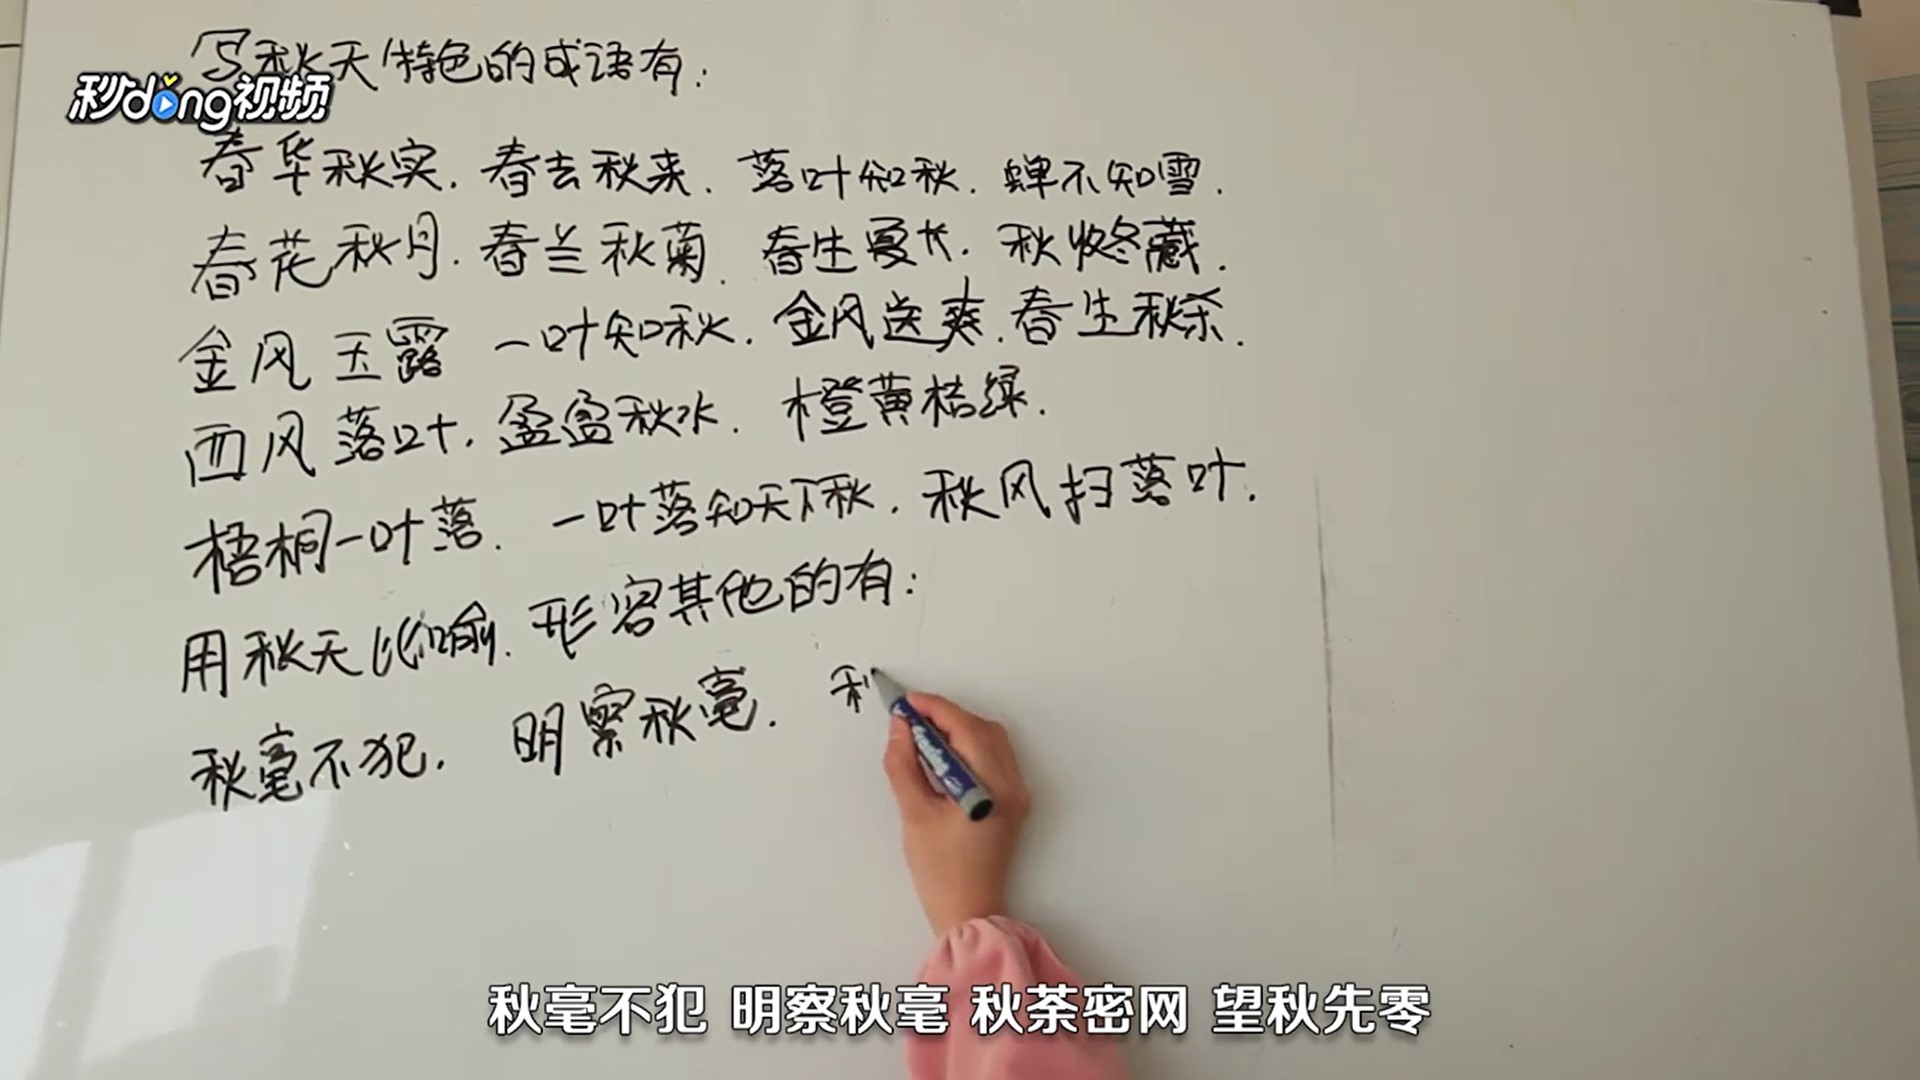 写秋天特色的成语有:
秒dong视频
春华秋实.春去秋来.落叶知秋.蝉不知雪.
春花秋月.春兰秋菊.春生夏长.秋收冬藏.
金风玉露 一叶知秋.金风送爽.春生秋杀.
西风落叶.盈盈秋水.橙黄桔绿.
梧桐一叶落.一叶落知天下秋.秋风扫落叶.
用秋天比喻.形容其他的有:
秋毫不犯.明察秋毫.
秋毫不犯 明察秋毫 秋荼密网 望秋先零